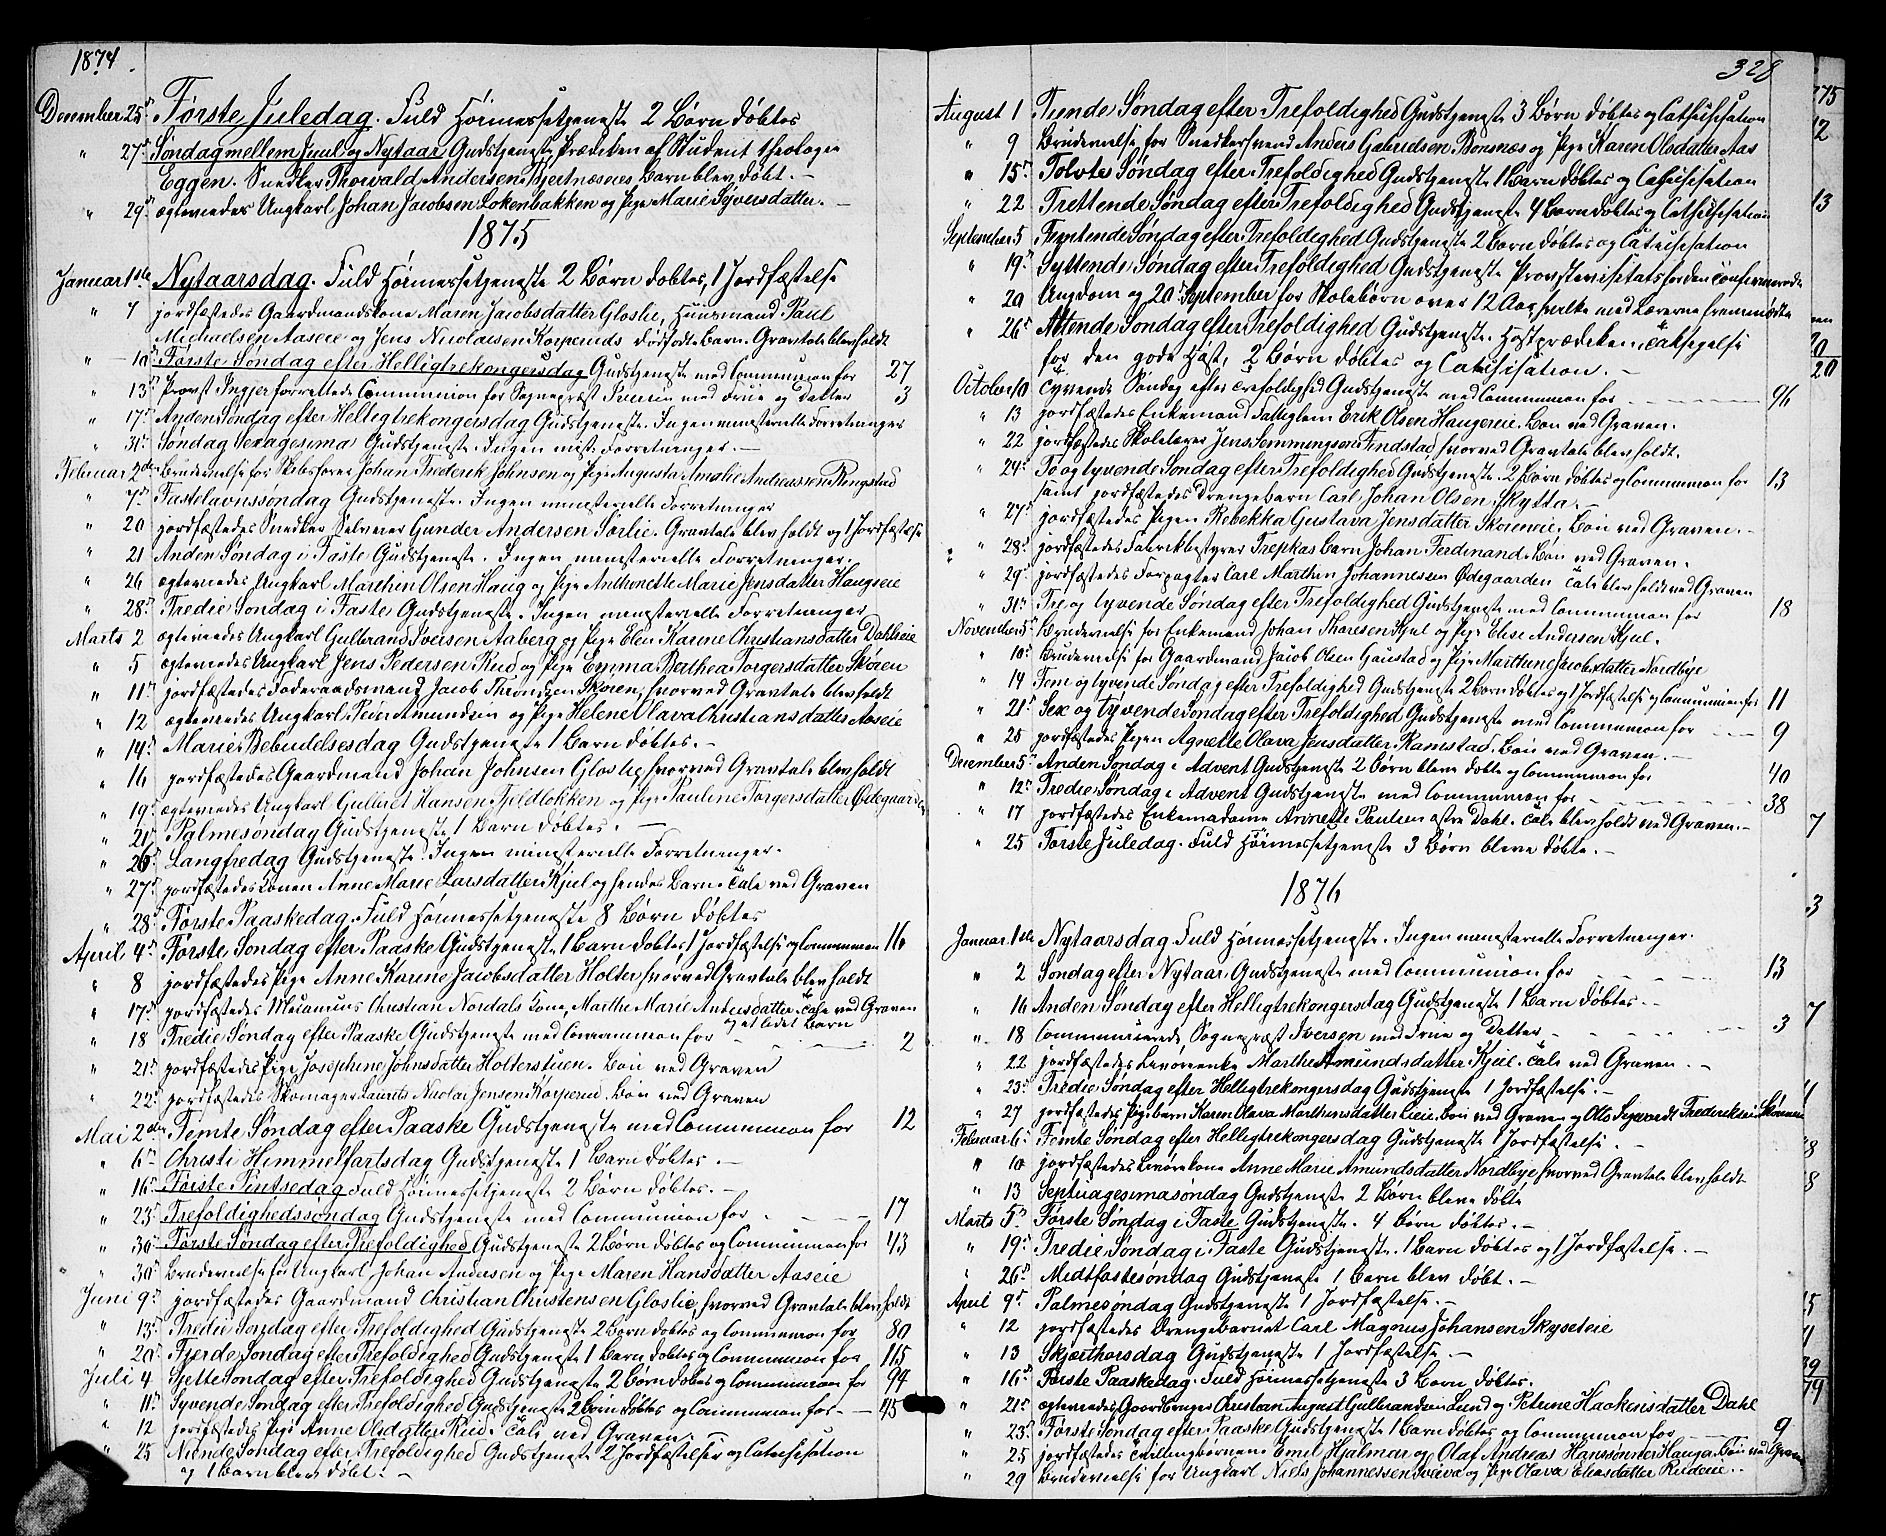 1874
December 25 Første Juledag. Fuld Høimessetjeneste 2 Børn døbtes
" 27 Søndag mellem Juul og Nytaar Gudstjeneste, Prædiken af Student theologie
Eggen. Snedker Thorvald Andersen Bjertnæseies Barn blev døbt. –
" 29 ægteviedes Ungkarl Johan Jacobsen Løkenbakken og Pige Marie Syversdatter. –
1875
Januar 1ste Nytaarsdag. Fuld Høimessetjeneste 2 Børn døbtes, 1 Jordfæstelse
" 7 jordfæstedes Gaardmandskone Maren Jacobsdatter Gloslie, Huusmand Paul
Michaelsen Aaseie og Jens Nicolaisen Korperuds dødfødte Barn. Gravtale blev holdt
" 10 Første Søndag efter Helligtrekongersdag Gudstjeneste med Communion for 27
" 13 Provst Ingier forrettede Communion for Sognepræst med Frue og Datter 3
" 17 Anden Søndag efter Helligtrekongersdag Gudstjeneste. Ingen ministerielle Forretninger
" 31 Søndag Sexagesima Gudstjeneste. Ingen minist. Forretninger. –
Februar 2den Brudevielse for Johan Frederik Johnsen og Pige Augusta Amalie Andreassen Ringstad
" 7 Fastelavnssøndag Gudstjeneste. Ingen ministerielle Forretninger
" 20 jordfæstedes Snedker Gunder Andersen Sørlie. Gravtale blev holdt og 1 Jordfæstelse
" 21 Anden Søndag i Faste Gudstjeneste. Ingen ministerielle Forretninger. –
" 26 ægteviedes Ungkarl Marthin Olsen Haug og Pige Anthonette Marie Jensdatter Haugseie
" 28 Tredie Søndag i Faste Gudstjeneste. Ingen ministerielle Forretninger
Marts 2 ægteviedes Ungkarl Gulbrand Iversen Aaberg og Pige Elen Karine Christiansdatter Dahleie
" 5 ægteviedes Ungkarl Jens Pedersen Rud og Pige Emma Berthea Torgersdatter Skøien
" 11 jordfæstedes Føderaadsmand Jacob Throndsen Skøien, hvorved Gravtale blev holdt
" 12 ægteviedes Ungkarl Peder Amundsen og Pige Helene Olava Christiansdatter Aaseie
" 14 Mariæ Bebudelsesdag Gudstjeneste 1 Barn døbtes. –
" 16 jordfæstedes Gaardmand Johan Johnsen Gloslie, hvorved Gravtale blev holdt
" 19 ægteviedes Ungkarl Gulbret Hansen Fjeldløkken og Pige Pauline Torgersdatter Ødegaarden
" 21 Palmesøndag Gudstjeneste 1 Barn døbtes. –
" 26 Langfredag Gudstjeneste. Ingen ministerielle Forretninger. –
" 27 jordfæstedes Konen Anne Marie Larsdatter Kjul og hendes Barn. Tale ved Graven
" 28 Første Paaskedag. Fuld Høimessetjeneste 8 Børn døbtes
April 4 Første Søndag efter Paaske Gudstjeneste 1 Barn døbtes 1 Jordfæstelse og Communion 16
" 8 jordfæstedes Pige Anne Karine Jacobsdatter Holter, hvorved Gravtale blev holdt
" 17 jordfæstedes Christian Nordals Kone, Marthe Marie Andersdatter. Tale ved Graven
og et lidet Barn
" 18 Tredie Søndag efter Paaske Gudstjeneste med Communion for – – 2
" 21 jordfæstedes Pige Josephine Johnsdatter Holterstuen. Bøn ved Graven
" 22 jordfæstedes Skomager Laurits Nicolai Jensen Korperud. Bøn ved Graven
Mai 2den Femte Søndag efter Paaske Gudstjeneste med Communion for 12
" 6 Christi Himmelfartsdag Gudstjeneste 1 Barn døbtes. –
" 16 Første Pintsedag Fuld Høimessetjeneste 2 Børn døbtes. –
" 23 Trefoldighedssøndag Gudstjeneste med Communion for – – – 17
" 30 Første Søndag efter Trefoldighed Gudstjeneste 2 Børn døbtes og Communion for 43
" 30 Brudevielse for Ungkarl Johan Andersen og Pige Maren Hansdatter Aaseie
Juni 9 jordfæstedes Gaardmand Christian Christensen Gloslie, hvorved Gravtale blev holdt
" 13 Tredie Søndag efter Trefoldighed Gudstjeneste 2 Børn døbtes og Communion for 80
" 20 Fjerde Søndag efter Trefoldighed Gudstjeneste 1 Barn døbtes og Communion for 115
Juli 4 Sjette Søndag efter Trefoldighed Gudstjeneste 2 Børn døbtes og Communion for 94
" 11 Syvende Søndag efter Trefoldighed Gudstjeneste 2 Børn døbtes og Communion for – – 45
" 12 jordfæstedes Pige Anne Olsdatter Rud. Tale ved Graven. –
" 25 Niende Søndag efter Trefoldighed Gudstjeneste 2 Jordfæstelser og Catechisation
og 1 Barn blev døbt. –
328
August 1 Tiende Søndag efter Trefoldighed Gudstjeneste 3 Børn døbtes og Catechisation
" 9 Brudevielse for Snedkersvend Anders Gabrielsen Bonsnes og Pige Karen Olsdatter Aas
" 15 Tolvte Søndag efter Trefoldighed Gudstjeneste 1 Barn døbtes og Catechisation
" 22 Trettende Søndag efter Trefoldighed Gudstjeneste 4 Børn døbtes og Catechisation
September 5 Femtende Søndag efter Trefoldighed Gudstjeneste 2 Børn døbtes og Catechisation
" 19 Syttende Søndag efter Trefoldighed Gudstjeneste Provstevisitats for den confirmerede
" 20 Ungdom og 20 September for Skolebørn over 12 Aar, hvilke med Lærerne fremmødte
" 26 Attende Søndag efter Trefoldighed Gudstjeneste. Høstprædiken, Taksigelse
for den gode Høst, 2 Børn døbtes og Catechisation. –
October 10 Tyvende Søndag efter Trefoldighed Gudstjeneste med Communion for – – – 96
" 13 jordfæstedes Enkemand Fattiglem Erik Olsen Haugereie. Bøn ved Graven.
" 22 jordfæstedes Skolelærer Jens Semmingsen Findstad, hvorved Gravtale blev holdt.
" 24 To og tyvende Søndag efter Trefoldighed Gudstjeneste. 2 Børn døbtes og Communion for 13
samt jordfæstedes Drengebarn Carl Johan Olsen Skytta.
" 27 jordfæstedes Pigen Rebekka Gustava Jensdatter Skøieneie. Bøn ved Graven. –
" 28 jordfæstedes Fabrikbestyrer Trepkas Barn Johan Ferdinand. Bøn ved Graven.
" 29 jordfæstedes Forpagter Carl Marthin Johannessen Ødegaarden Tale blev holdt ved Graven
" 31 Tre og tyvende Søndag efter Trefoldighed Gudstjeneste med Communion for 18
November 5 Brudevielse for Enkemand Johan Tharesen Kjul og Pige Elise Andersen Kjul.
" 10 Brudevielse for Gaardmand Jacob Olsen Gaustad og Pige Marthine Jacobsdatter Nordbye
" 14 Fem og tyvende Søndag efter Trefoldighed Gudstjeneste 2 Børn døbtes og 1 Jordfæstelse og Communion for 11
" 21 Sex og tyvende Søndag efter Trefoldighed Gudstjeneste med Communion for – – 9
" 25 jordfæstedes Pigen Agnette Olava Jensdatter Ramstad. Bøn ved Graven. –
December 5 Anden Søndag i Advent Gudstjeneste 2 Børn bleve døbte og Communion for 40
" 12 Tredie Søndag i Advent Gudstjeneste med Communion for – – – – 38
" 17 jordfæstedes Enkemadame Annette Paulsen østre Dahl. Tale blev holdt ved Graven. –
" 25 Første Juledag. Fuld Høimessetjeneste 3 Børn bleve døbte. –
1876
Januar 1ste Nytaarsdag Fuld Høimessetjeneste. Ingen ministerielle Forretninger.
" 2 Søndag efter Nytaar Gudstjeneste med Communion for – – – 13
" 16 Anden Søndag efter Helligtrekongersdag Gudstjeneste 1 Barn døbtes. –
" 18 Communicerede Sognepræst Iversen med Frue og Datter – – – – 3
" 22 jordfæstedes Marthe Amundsdatter Kjul. Tale ved Graven. –
" 23 Tredie Søndag efter Helligtrekongersdag Gudstjeneste 1 Jordfæstelse. –
" 27 jordfæstedes Pigebarn Karen Olava Marthinsdatter Lieie. Bøn ved Graven og Ols Segvardt Frederiksen Skøieneie
Februar 6 Femte Søndag efter Helligtrekongersdag Gudstjeneste 1 Jordfæstelse. –
" 10 jordfæstedes Anne Marie Amundsdatter Nordbye hvorved Gravtale blev holdt
" 13 Septuagesimasøndag Gudstjeneste 2 Børn bleve døbte
Marts 5 Første Søndag i Faste Gudstjeneste. 4 Børn døbtes. –
" 19 Tredie Søndag i Faste Gudstjeneste. 1 Barn døbtes og 1 Jordfæstelse. –
" 26 Midtfastesøndag Gudstjeneste 1 Barn blev døbt. –
April 9 Palmesøndag Gudstjeneste 1 Jordfæstelse. –
" 12 jordfæstedes Drengebarnet Carl Magnus Johansen Skyseteie
" 13 Skjærthorsdag Gudstjeneste 1 Jordfæstelse. –
" 16 Første Paaskedag. Fuld Høimessetjeneste 3 Børn døbtes.
" 21 ægteviedes Gaardbruger Christian August Gulbrandsen Lund og Petrine Haakensdatter Dahl
" 23 Første Søndag efter Paaske Gudstjeneste 1 Barn døbtes og Communion for 9
" 25 jordfæstedes Tvillingbørnene Emil Hjalmar og Olaf Andreas Hanssønner Hauga. Bøn ved Graven
" 29 Brudevielse for Ungkarl Niels Johannessen og Pige Olava Eliasdatter Rudeie. –